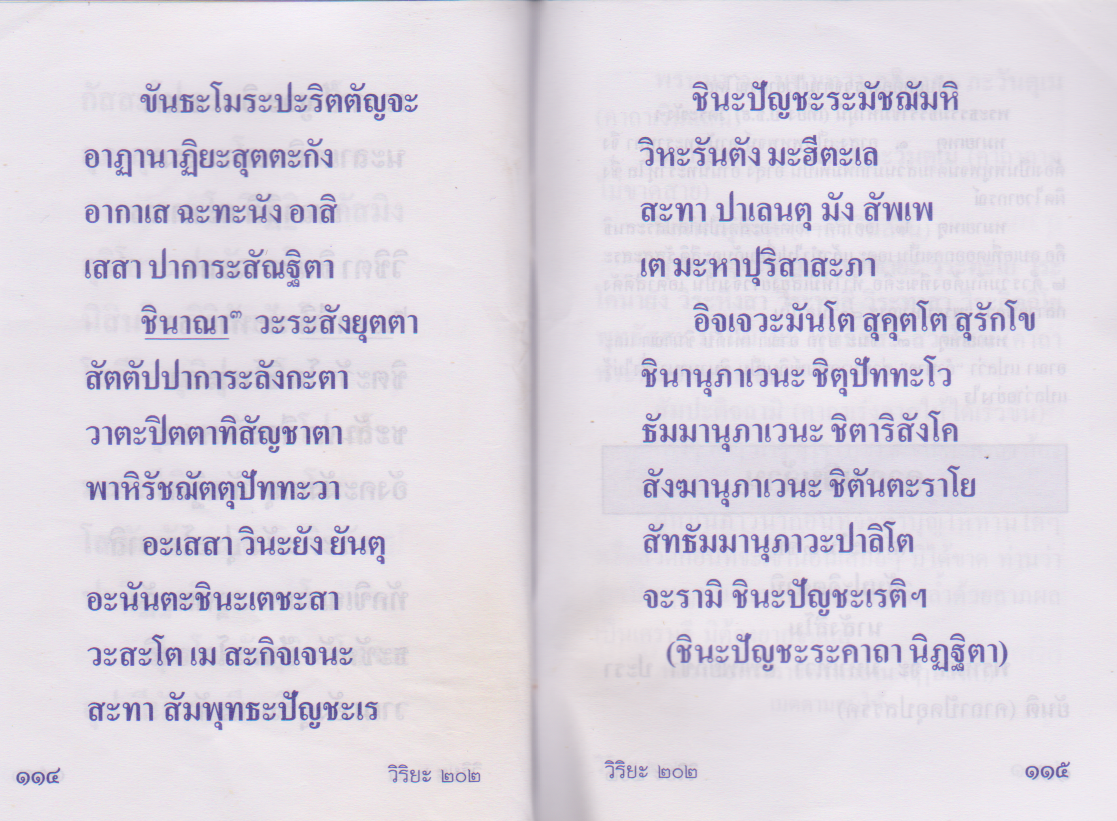 ขันธะโมระปะริตตัญจะ
อาฏานาฏิยะสุตตะกัง
อากาเส ฉะทะนัง อาสิ
เสสา ปาการะสัณฐิตา
ชินาณา วะระสังยุตตา
สัตตัปปาการะลังกะตา
วาตะปิตตาทิสัญชาตา
พาหิรัชฌัตตุปัททะวา
อะเสสา วินะยัง ยันตุ
อะนันตะชินะเตชะสา
วะสะโต เม สะกิจเจนะ
สะทา สัมพุทธะปัญชะเร
๑๑๔ วิริยะ ๒๐๒
ชินะปัญชะระมัชฌัมหิ
วิหะรันตัง มะฮีตะเล
สะทา ปาเลนตุ มัง สัพเพ
เต มะหาปุริสาสะภา
อิจเจวะมันโต สุคุตโต สุรักโข
ชินานุภาเวนะ ชิตุปัททะโว
ธัมมานุภาเวนะ ชิตาริสังโค
สังฆานุภาเวนะ ชิตันตะราโย
สัทธัมมานุภาวะปาลิโต
จะรามิ ชินะปัญชะเรติฯ
(ชินะปัญชะระคาถา นิฏฐิตา)
วิริยะ ๒๐๒ ๑๑๕